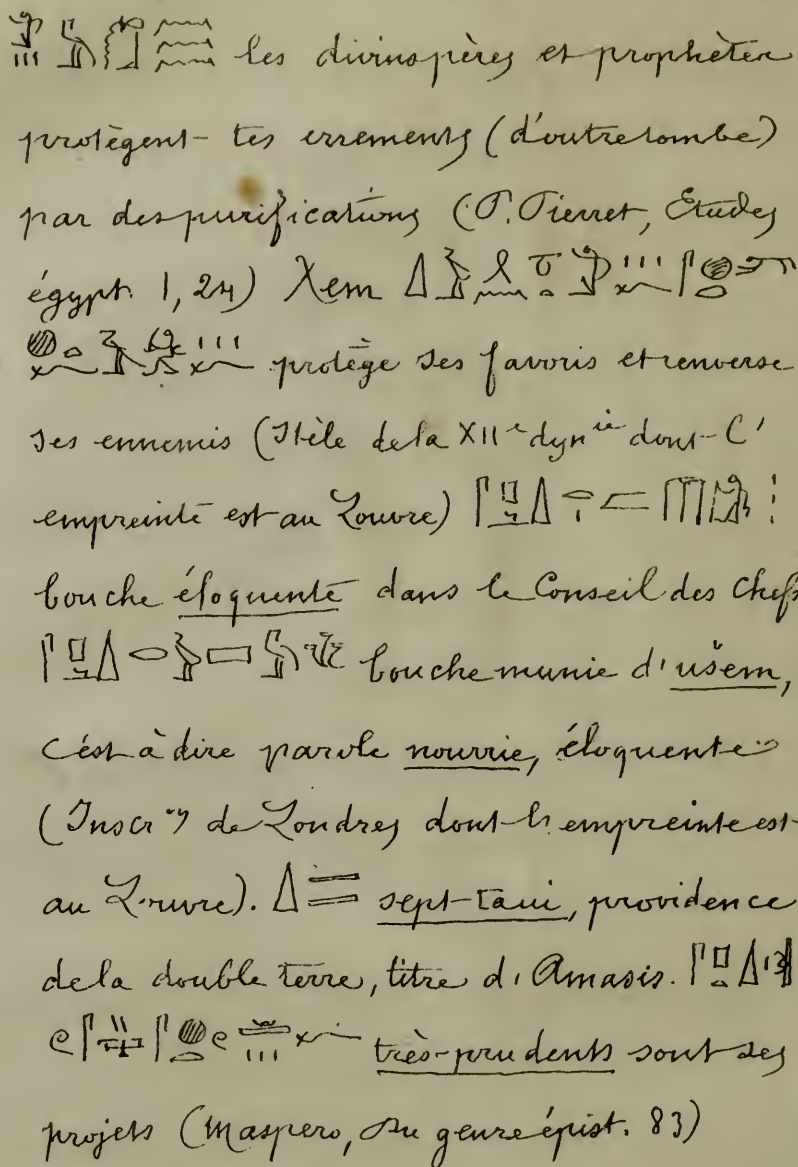 les divins pères et prophètes
protègent tes errements (d'outretombe)
par des purifications (P. Pierret, Etudes
égypt. 1, 24) Xem
protège ses favoris et renverse
ses ennemis (Stèle de la XIIe dynie dont l'
empreinte est au Louvre)
bouche éloquente dans le Conseil des chefs
bouche munie d'ušem,
c'est à dire parole nourrie, éloquente
(Inscr. de Londres dont l'empreinte est
au Louvre). sept-taui, providence
de la double terre, titre d'Amasis.
très-prudents sont ses
projets (Maspero, Du genre épist. 83)